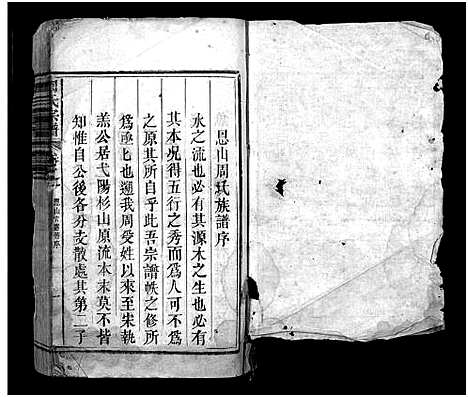 恩山周氏族譜序
水之流也必有其源木之生也必有
其本况得五行之秀而爲人可不爲
之原其所自乎此吾宗譜帙之修所
爲亟也遡我周受姓以來至宋執
羔公居弋陽杉山原流本末莫不皆
知惟自公後各分支散處其第二子
周氏宗譜